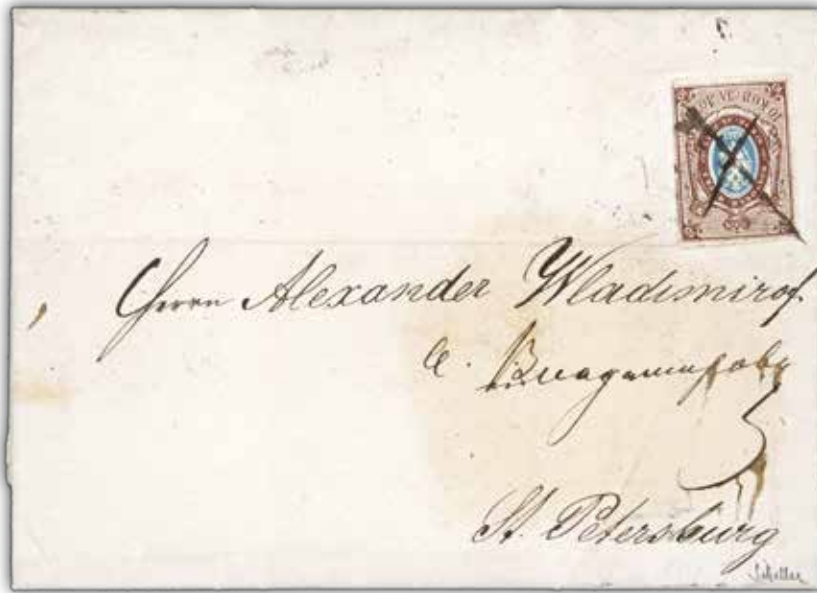 Herrn Alexander Wladimirof
А. Владимировъ
St. Petersburg